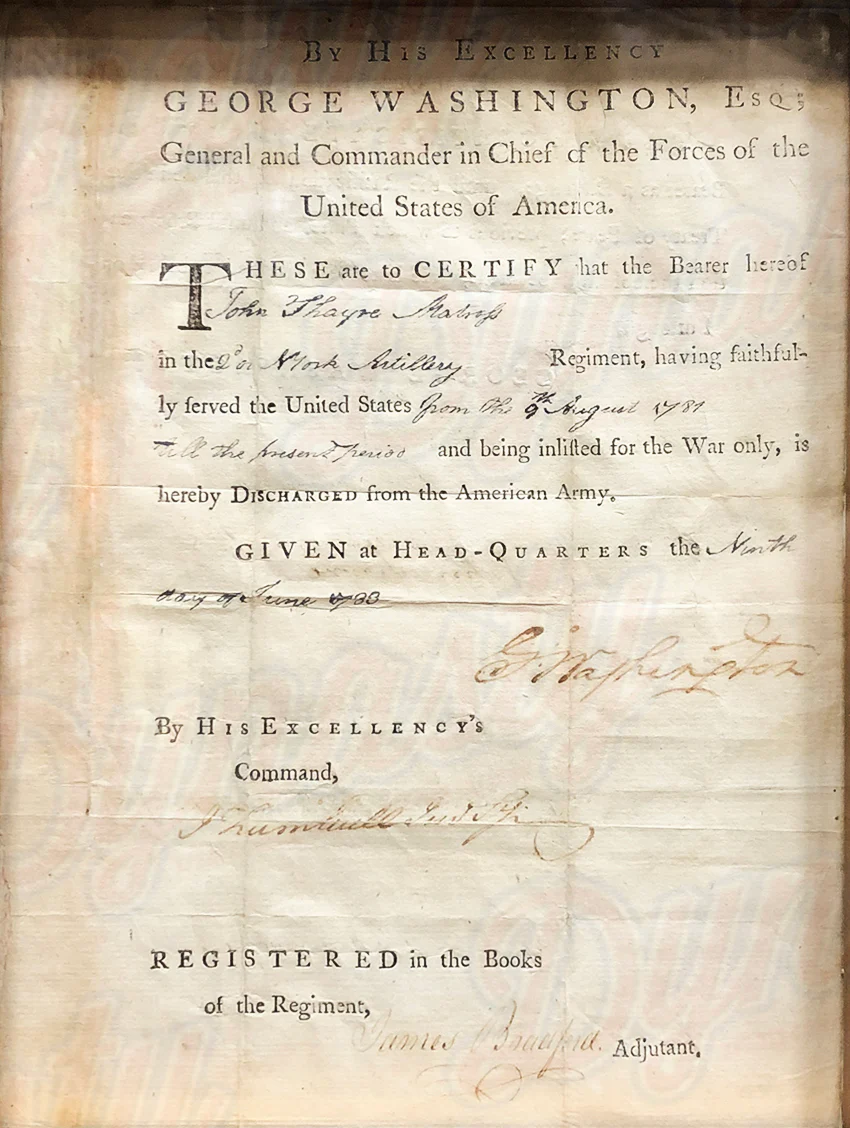 By His Excellency
GEORGE WASHINGTON, Esq;
General and Commander in Chief of the Forces of the
United States of America.
THESE are to CERTIFY that the Bearer hereof
John Thayre Matross
in the 2d or N York Artillery Regiment, having faithful-
ly ſerved the United States from the 9th August 1781
till the present period and being inliſted for the War only, is
hereby Discharged from the American Army.
GIVEN at Head-Quarters the Ninth
day of June 1783
G:Washington
By His Excellency's
Command,
J Trumbull Jun
REGISTERED in the Books
of the Regiment,
James Bradford. Adjutant.